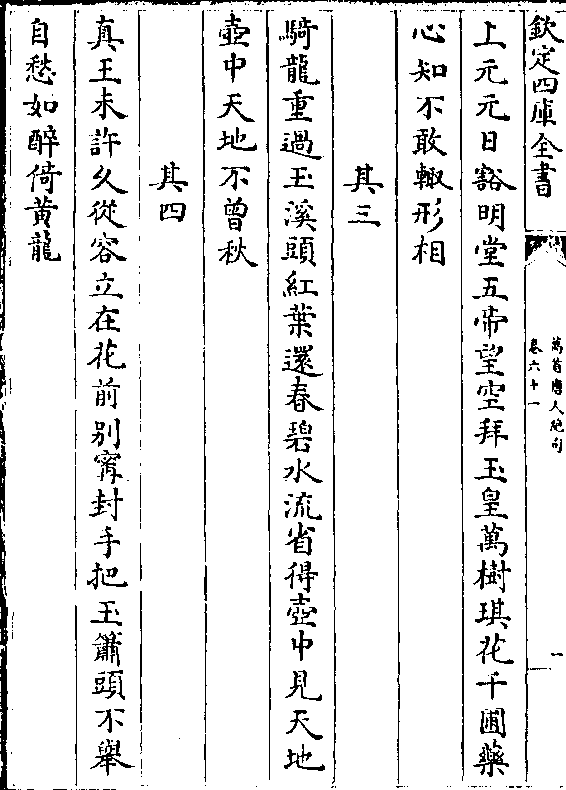 欽定四庫全書
萬首唐人絶句
卷六十一
一
上元元日豁明堂五帝望空拜玉皇萬樹琪花千圃藥
心知不敢輙形相
其三
騎龍重過玉溪頭紅葉還春碧水流省得壺中見天地
壺中天地不曾秋
其四
真王未許久從容立在花前别甯封手把玉簫頭不舉
自愁如醉倚黄龍